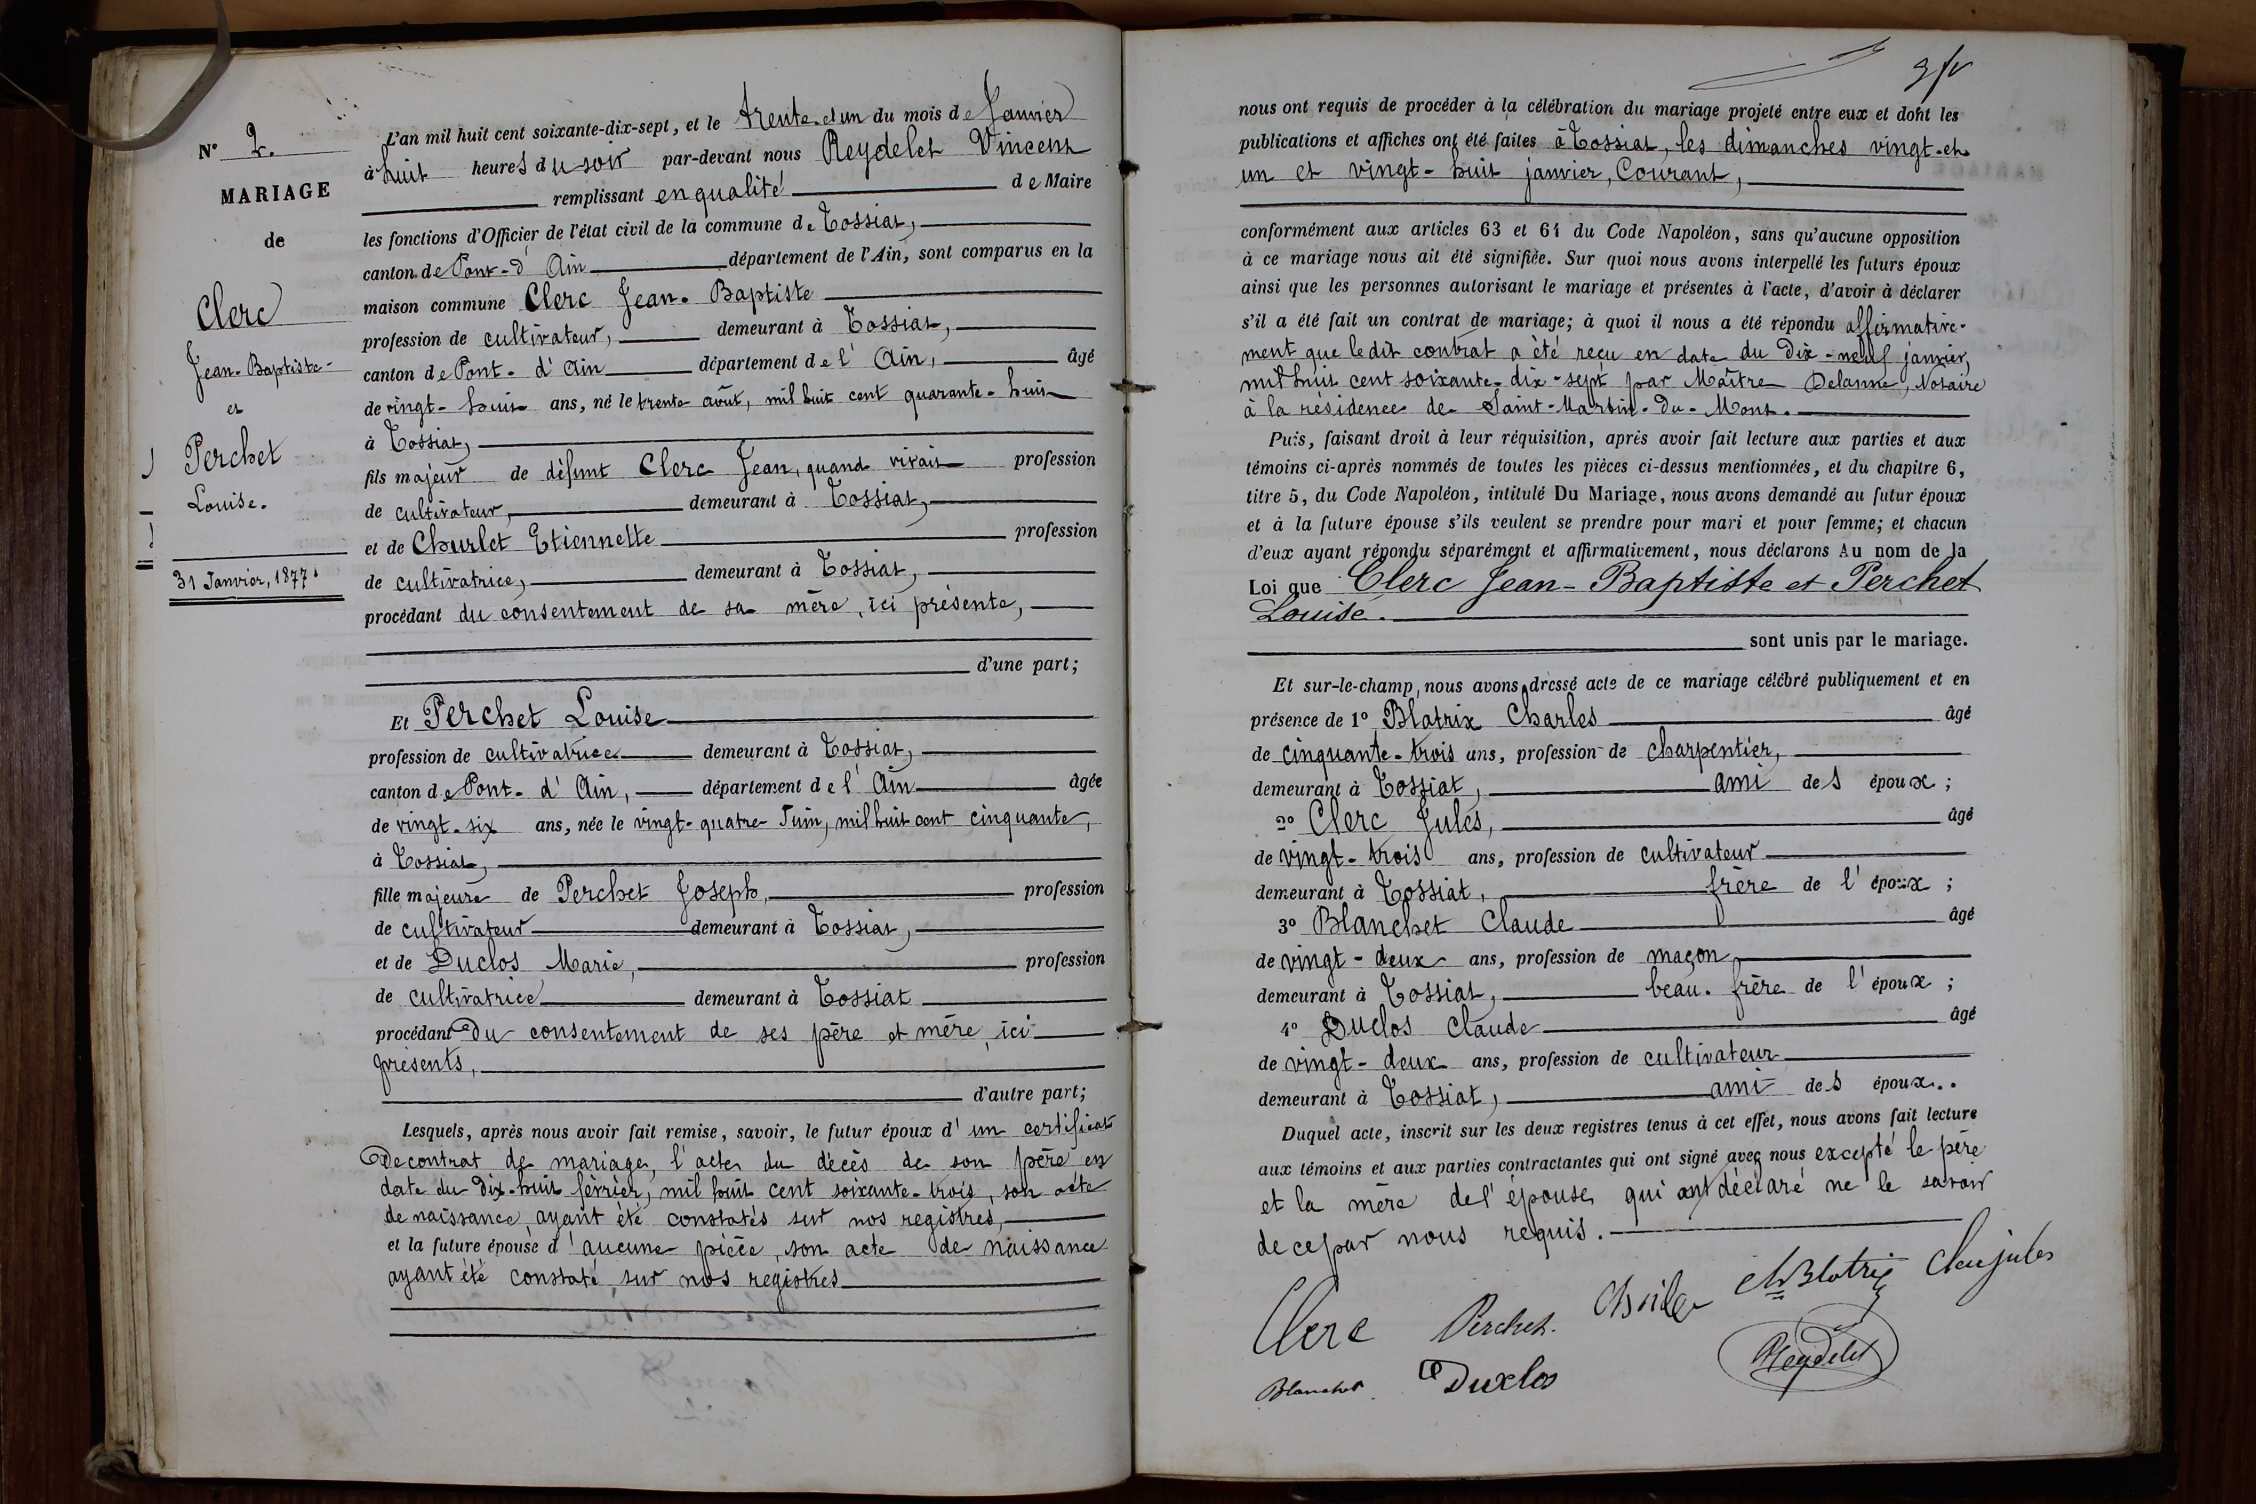 N° 2.
MARIAGE
de
Clerc
Jean-Baptiste
et
Perchet
Louise.
31 Janvier, 1877.
L'an mil huit cent soixante-dix-sept, et le trente-et un du mois de Janvier
à huit heures du soir par-devant nous Reydelet Vincent
remplissant en qualité de Maire
les fonctions d'Officier de l'état civil de la commune de Tossiat,
canton de Pont-d'Ain département de l'Ain, sont comparus en la
maison commune Clerc Jean-Baptiste
profession de cultivateur, demeurant à Tossiat,
canton de Pont-d'Ain département de l'Ain, âgé
de vingt-huit ans, né le trente août, mil huit cent quarante-huit
à Tossiat,
fils majeur de défunt Clerc Jean, quand vivait profession
de cultivateur, demeurant à Tossiat,
et de Churlet Etiennette profession
de cultivatrice, demeurant à Tossiat,
procédant du consentement de sa mère, ici présente,
d'une part;
Et Perchet Louise
profession de cultivatrice demeurant à Tossiat,
canton de Pont-d'Ain, département de l'Ain âgée
de vingt-six ans, née le vingt-quatre Juin, mil huit cent cinquante,
à Tossiat,
fille majeure de Perchet Joseph, profession
de cultivateur demeurant à Tossiat,
et de Duclos Marie, profession
de cultivatrice demeurant à Tossiat
procédant du consentement de ses père et mère, ici
présents,
d'autre part;
Lesquels, après nous avoir fait remise, savoir, le futur époux d'un certificat
De contrat de mariage, l'acte du décès de son père en
date du Dix-huit février, mil huit cent soixante-trois, son acte
de naissance, ayant été constatés sur nos registres,
et la future épouse d'aucune pièce, son acte de naissance
ayant été constaté sur nos registres
nous ont requis de procéder à la célébration du mariage projeté entre eux et dont les
publications et affiches ont été faites à Tossiat, les dimanches vingt-et
un et vingt-huit janvier, Courant,
conformément aux articles 63 et 64 du Code Napoléon, sans qu'aucune opposition
à ce mariage nous ait été signifiée. Sur quoi nous avons interpellé les futurs époux
ainsi que les personnes autorisant le mariage et présentes à l'acte, d'avoir à déclarer
s'il a été fait un contrat de mariage; à quoi il nous a été répondu affirmative-
ment que le dit contrat a été reçu en date du Dix-neuf janvier,
mil huit cent soixante-dix-sept par Maître Delanne, Notaire
à la résidence de Saint-Martin-du-Mont.
Puis, faisant droit à leur réquisition, après avoir fait lecture aux parties et aux
témoins ci-après nommés de toutes les pièces ci-dessus mentionnées, et du chapitre 6,
titre 5, du Code Napoléon, intitulé Du Mariage, nous avons demandé au futur époux
et à la future épouse s'ils veulent se prendre pour mari et pour femme; et chacun
d'eux ayant répondu séparément et affirmativement, nous déclarons Au nom de la
Loi que Clerc Jean-Baptiste et Perchet
Louise.
sont unis par le mariage.
Et sur-le-champ, nous avons dressé acte de ce mariage célébré publiquement et en
présence de 1° Blatrix Charles âgé
de cinquante-trois ans, profession de charpentier,
demeurant à Tossiat, ami des époux;
2° Clerc Jules, âgé
de vingt-trois ans, profession de cultivateur
demeurant à Tossiat, frère de l'époux;
3° Blanchet Claude âgé
de vingt-deux ans, profession de maçon,
demeurant à Tossiat, beau-frère de l'époux;
4° Duclos Claude âgé
de vingt-deux ans, profession de cultivateur
demeurant à Tossiat, ami des époux..
Duquel acte, inscrit sur les deux registres tenus à cet effet, nous avons fait lecture
aux témoins et aux parties contractantes qui ont signé avec nous excepté le père
et la mère de l'épouse qui ont déclaré ne le savoir
de ce par nous requis.
Clerc Perchet. Ch Blatrix Clerc jules
Blanchet. C Duclos Reydelet